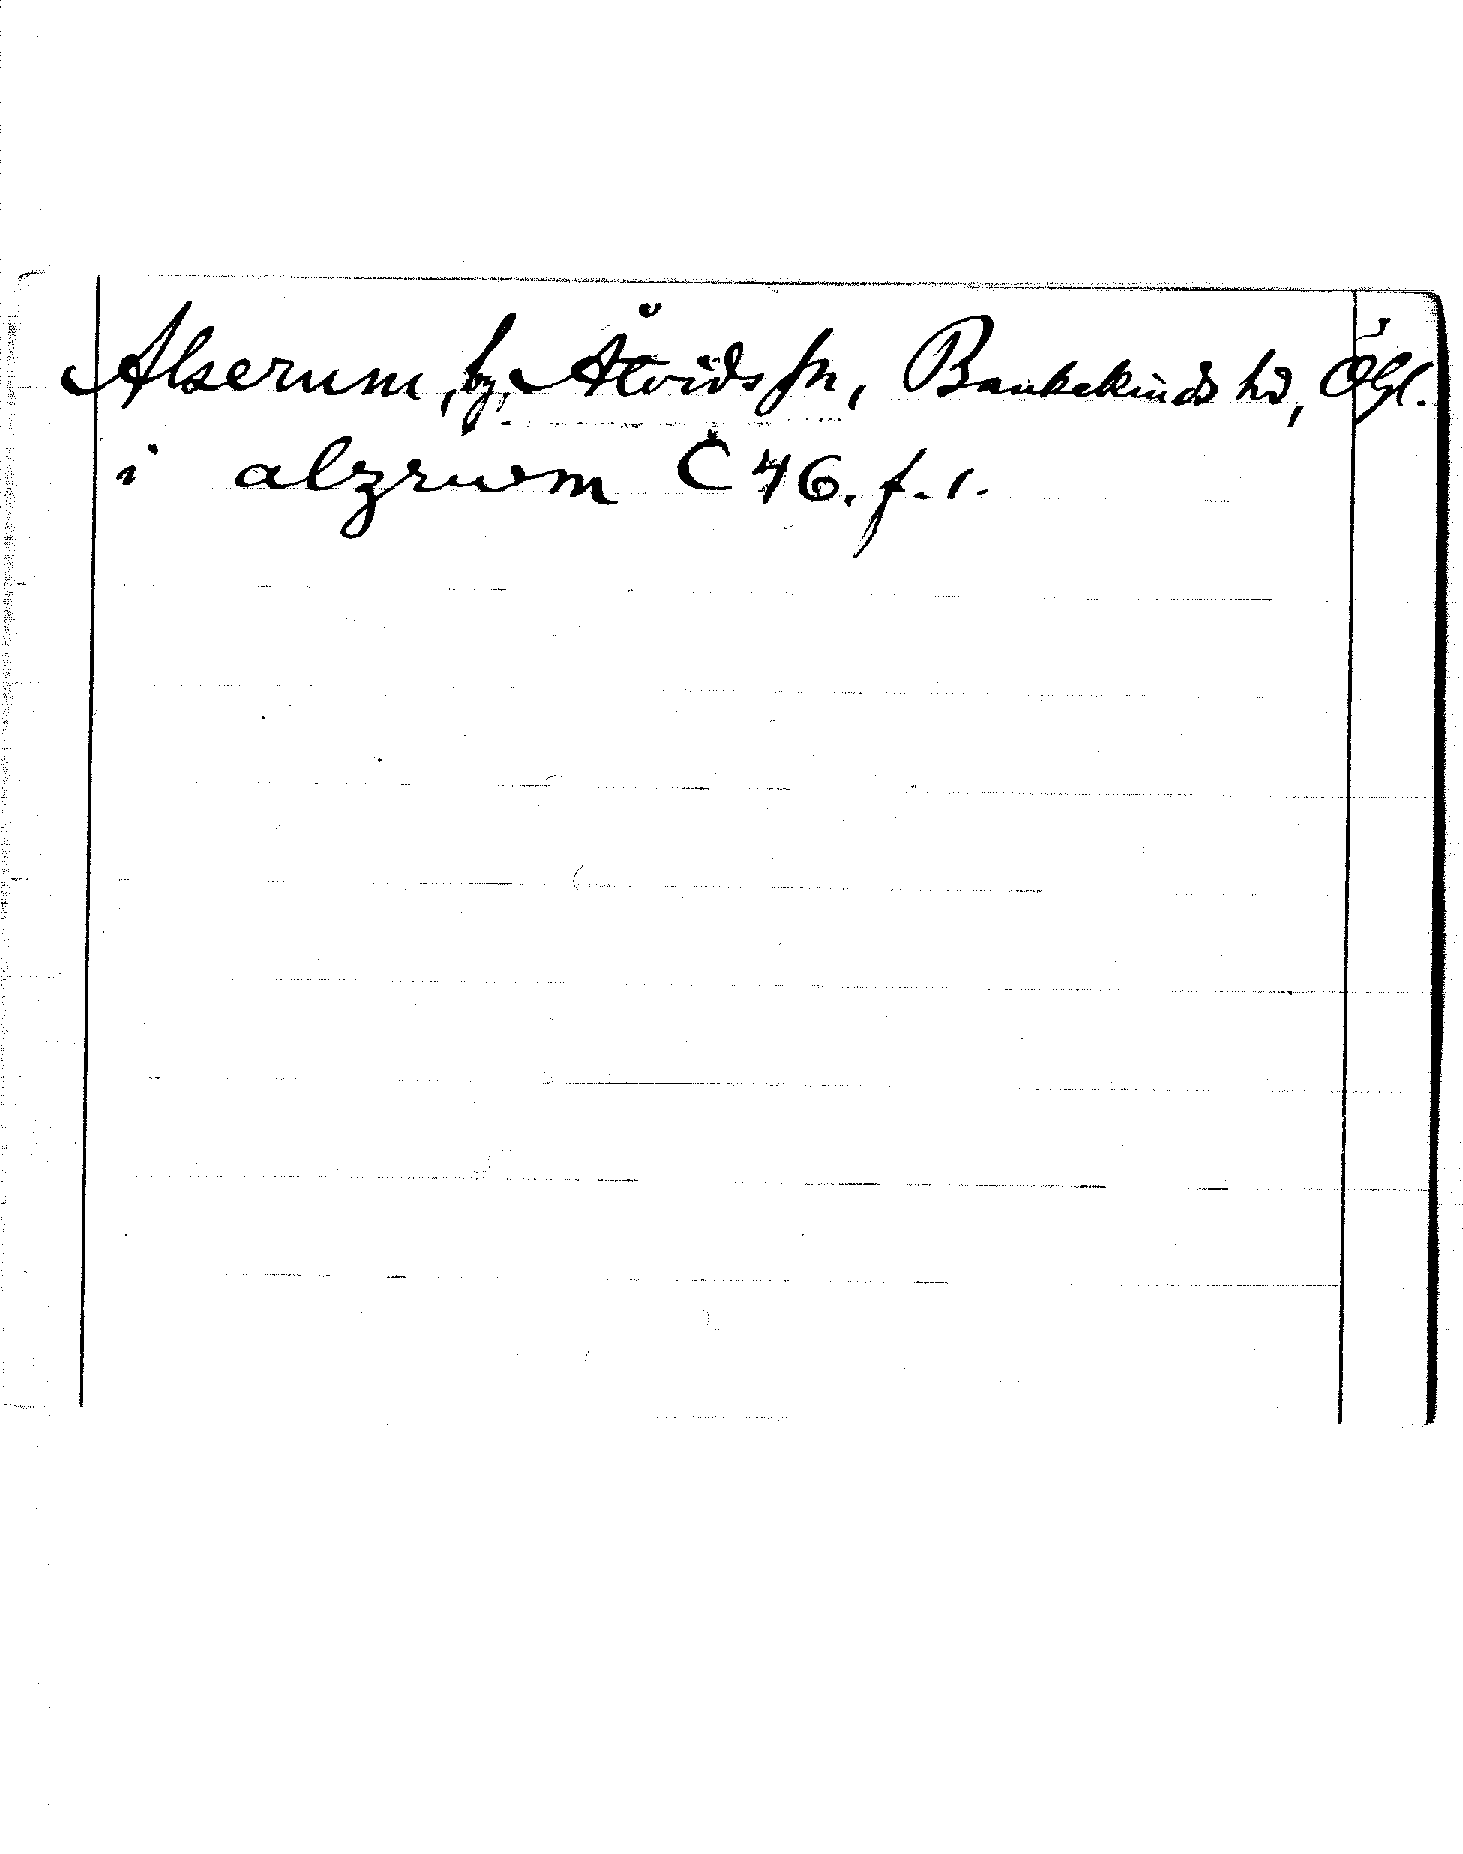 Alserum, by, Åtvids sn, Bankekinds hd, Ögl.
i alzruwm C 46. f. 1.